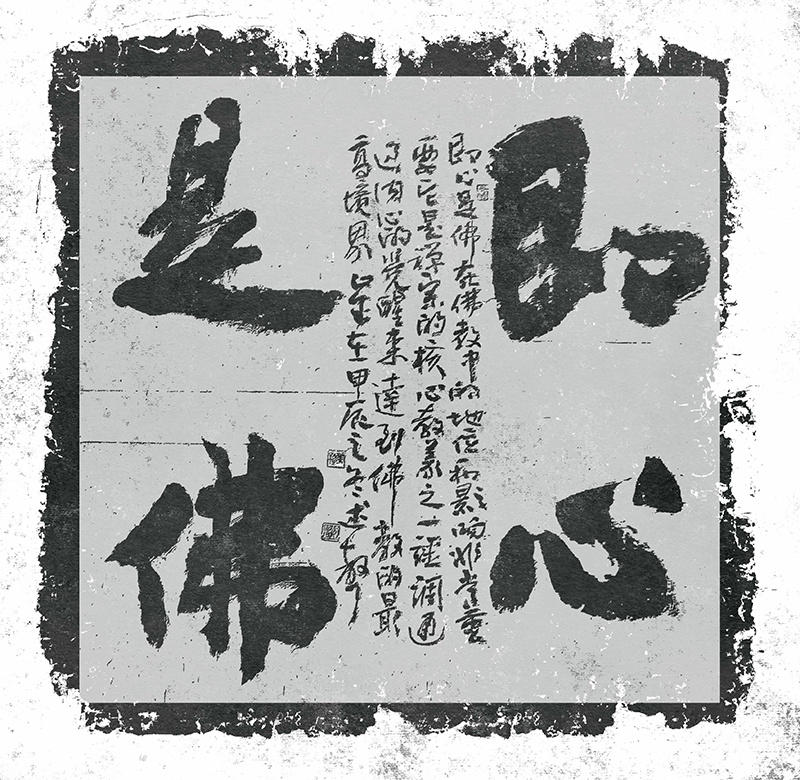 即心
即心是佛在佛教中的地位和影响非常重
要它是禪宗的核心教義之一强调通
过内心的覺醒来達到佛教的最
高境界 在甲辰之冬
是佛